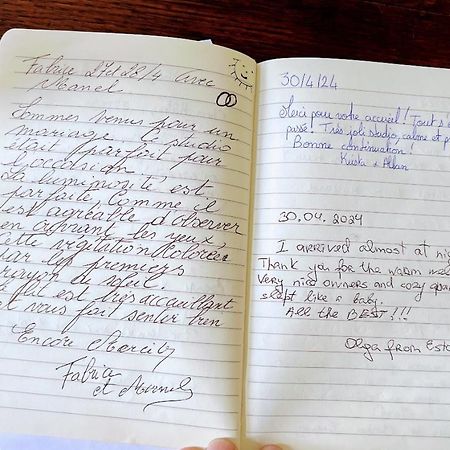 Fabrice 27 et 28/4 avec
Manel
Sommes venus pour un
mariage. Le studio
était parfait pour
l'occasion
La luminosité est
parfaite, comme il
est agréable d'observer
en ouvrant les yeux
cette végétation colorée
par les premiers
rayon de soleil.
Le lit est très accueillant
et vous fait sentir bien
Encore Merci
Fabrice
et Manel
30/4/24
Merci pour votre accueil! Tout s'
passé! Très joli studio, calme et p
Bonne continuation!
& Allan
30.04.2024
I arrived almost at nig
Thank you for the warm wel
very nice owners and cozy apar
slept like a baby.
All the BEST!!!
Olga from Esto